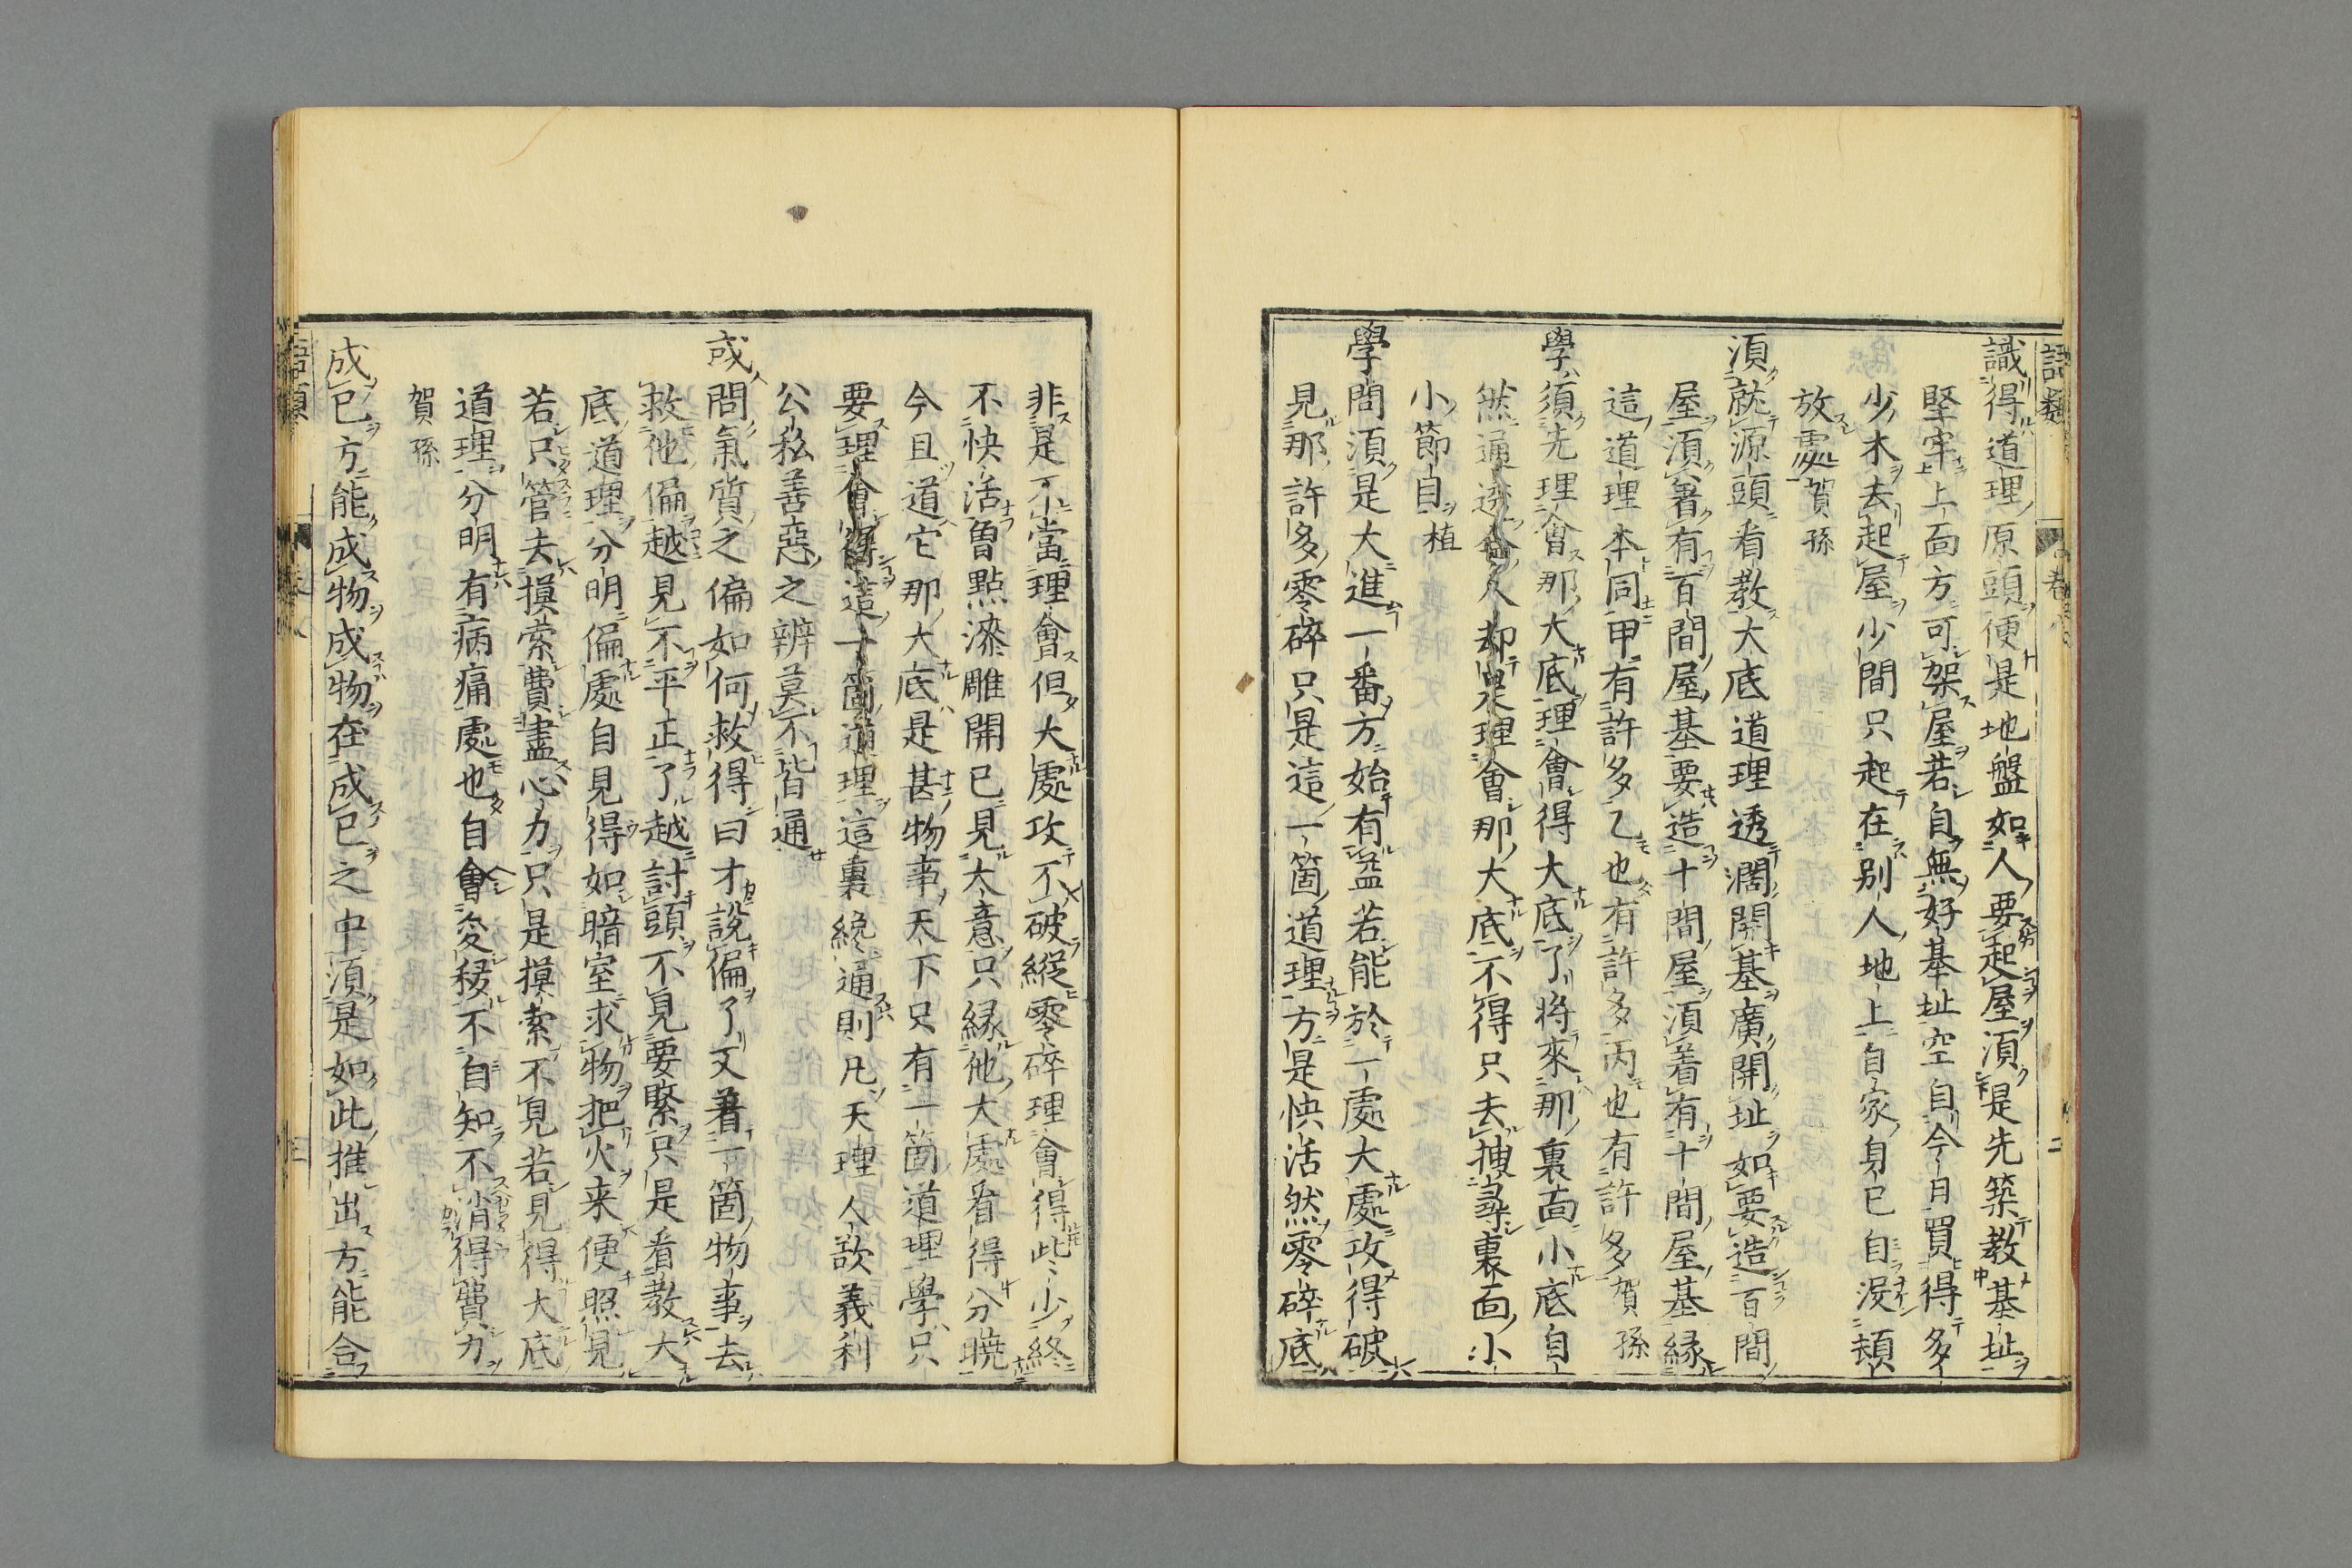 識得道理原頭便是地盤如人要起屋須是先築教基址
堅牢上面方可架屋若自無好基址空自今日買得多
少木去起屋少間只起在別人地上自家身己自沒頓
放處賀孫
須就源頭看教大底道理透濶開基廣開址如要造百間
屋須著有百間屋基要造十間屋須著有十間屋基縁
這道理本同甲有許多乙也有許多丙也有許多賀孫
學須先理會那大底理會得大底了將來那裏面小底自
然通透今人却是理會那大底不得只去捜尋裏面小
小節目植
學問須是大進一番方始有益若能於一處大處攻得破
見那許多零碎只是這一箇道理方是快活然零碎底
非是不當理會但大處攻不破縱零碎理會得些少終
不快活曽點漆雕開已見大意只縁他大處看得分曉
今且道它那大底是甚物事天下只有一箇道理學只
要理會得這一箇道理這裏纔通則凡天理人欲義利
公私善惡之辨莫不皆通
或問氣質之偏如何救得曰才說偏了又著一箇物事去
救他偏越見不平正了越討頭不見要緊只是看教大
底道理分明偏處自見得如暗室求物把火来便照見
若只管去摸索費盡心力只是摸索不見若見得大底
道理分明有病痛處也自會変移不自知不消得費力
賀孫
成己方能成物成物在成己之中須是如此推出方能合
語類
二
三